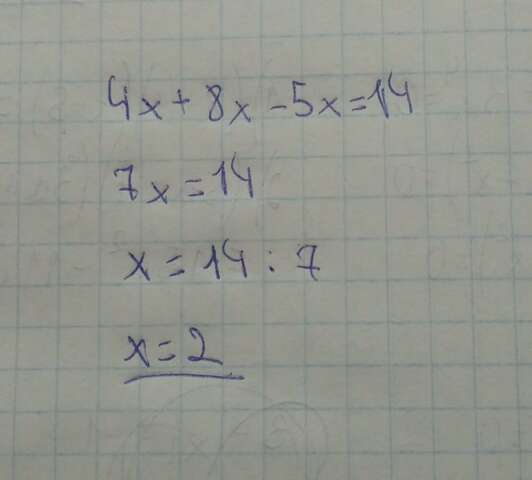 4x + 8x - 5x = 14
7x = 14
x = 14 : 7
x = 2